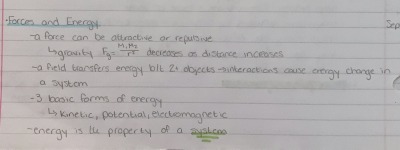 -Forces and Energy
-a force can be attractive or repulsive
↳gravity Fg= M₁M₂/r² decreases as distance increases
-a field transfers energy b/t 2+ objects→interactions cause energy change in
a system
-3 basic forms of energy
↳kinetic, potential, electromagnetic
-energy is the property of a system
Sep